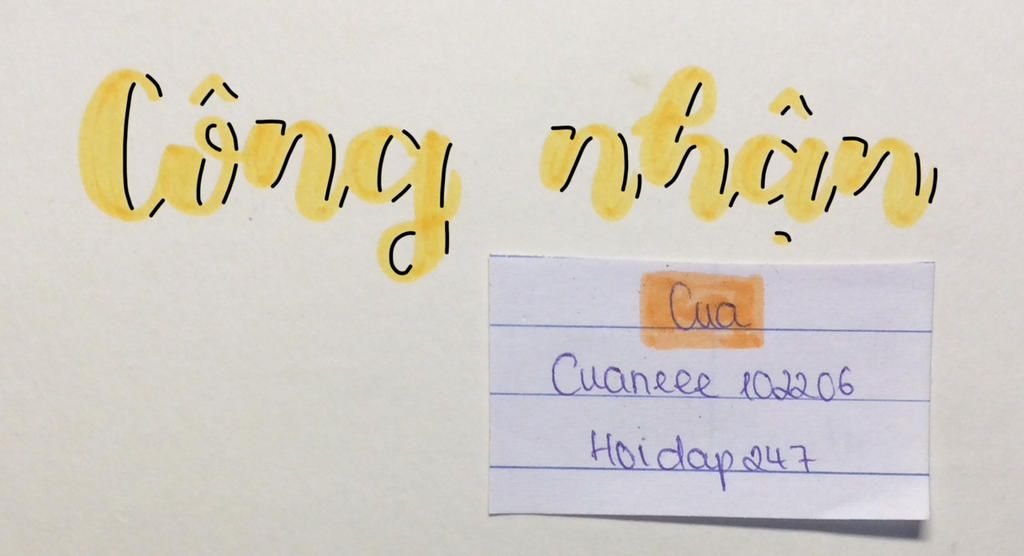 Công nhận
Cua
Cuaneee 102206
Hoidap247